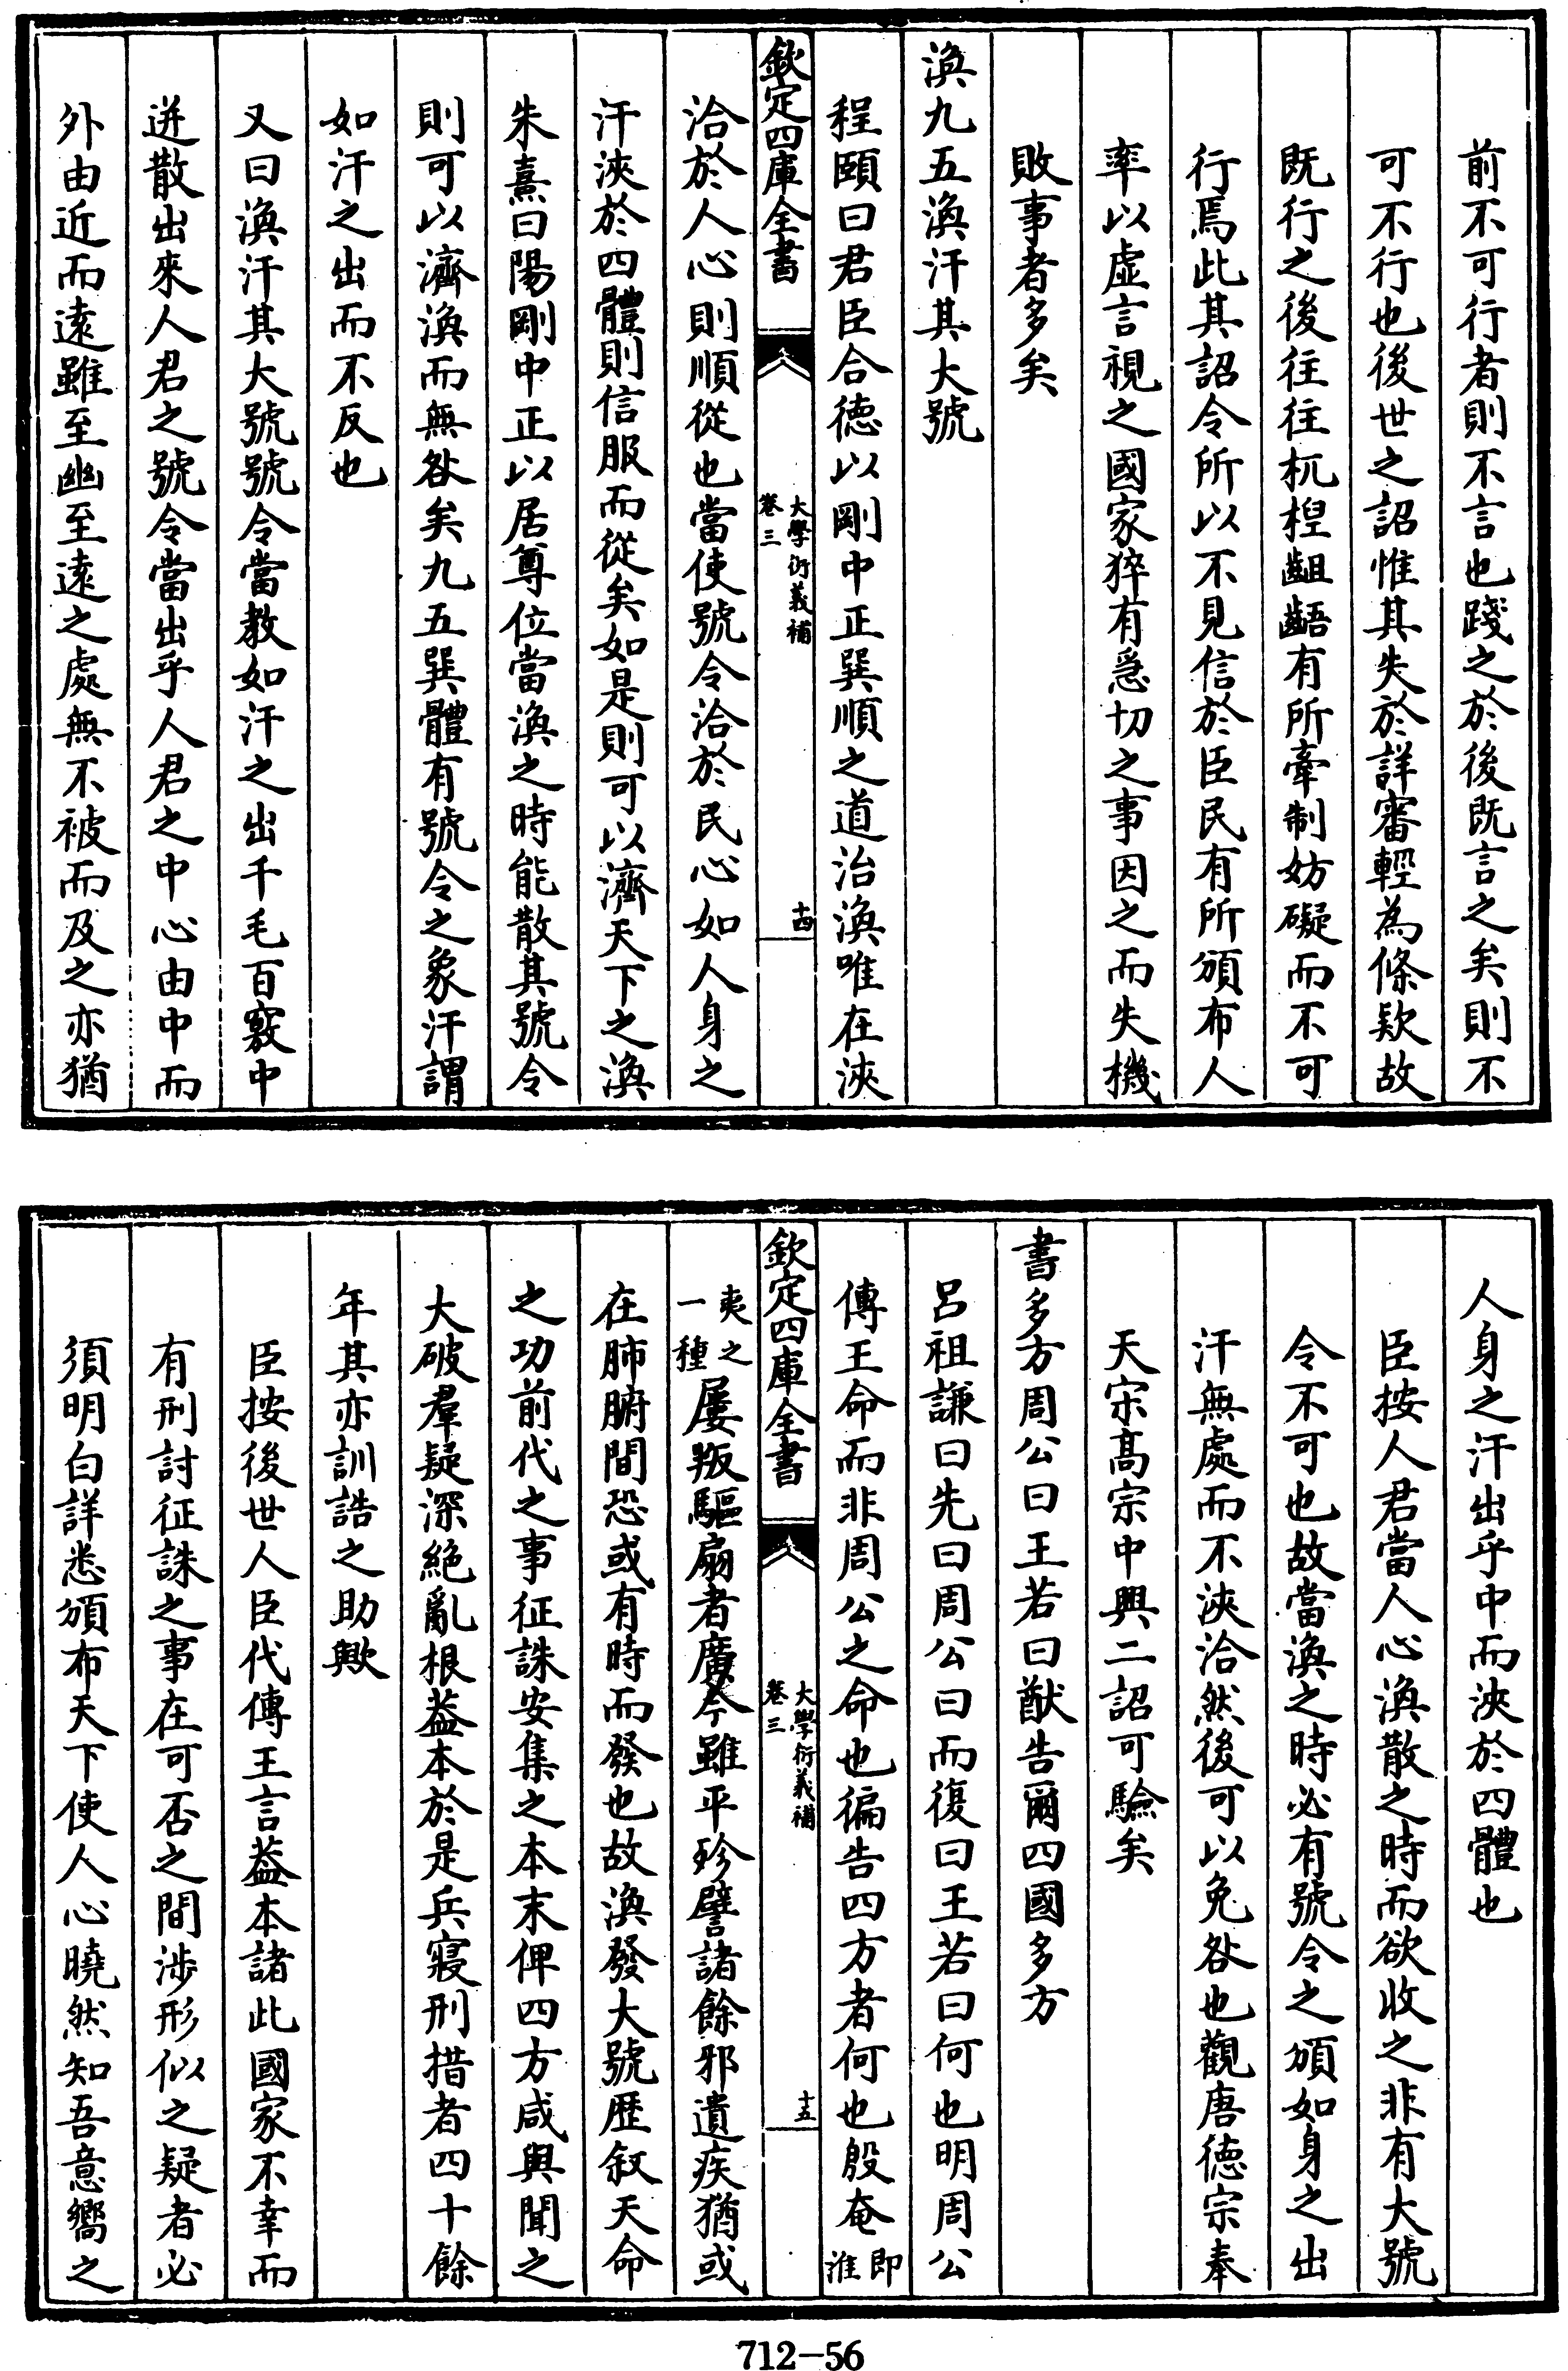 前不可行者則不言也踐之於後既言之矣則不
可不行也後世之詔惟其失於詳審輕為條款故
既行之後往往杌桯齟齬有所牽制妨礙而不可
行焉此其詔令所以不見信於臣民有所頒布人
率以虛言視之國家猝有急切之事因之而失機
敗事者多矣
渙九五渙汗其大號
程頤曰君臣合德以剛中正巽順之道治渙唯在浹
欽定四庫全書
大學衍義補
卷三
十四
洽於人心則順從也當使號令洽於民心如人身之
汗浹於四體則信服而從矣如是則可以濟天下之渙
朱熹曰陽剛中正以居尊位當渙之時能散其號令
則可以濟渙而無咎矣九五巽體有號令之象汗謂
如汗之出而不反也
又曰渙汗其大號號令當教如汗之出千毛百竅中
迸散出來人君之號令當出乎人君之中心由中而
外由近而遠雖至幽至遠之處無不被而及之亦猶
人身之汗出乎中而浹於四體也
臣按人君當人心渙散之時而欲收之非有大號
令不可也故當渙之時必有號令之頒如身之出
汗無處而不浹洽然後可以免咎也觀唐德宗奉
天宋高宗中興二詔可驗矣
書多方周公曰王若曰猷告爾四國多方
呂祖謙曰先曰周公曰而復曰王若曰何也明周公
傳王命而非周公之命也徧告四方者何也殷奄即淮
欽定四庫全書
大學衍義補
卷三
十五
夷之一種屢叛驅扇者廣今雖平殄譬諸餘邪遺疾猶或
在肺腑間恐或有時而發也故渙發大號歴敘天命
之功前代之事征誅安集之本末俾四方咸與聞之
大破羣疑深絕亂根葢本於是兵寢刑措者四十餘
年其亦訓誥之助歟
臣按後世人臣代傳王言葢本諸此國家不幸而
有刑討征誅之事在可否之間涉形似之疑者必
須明白詳悉頒布天下使人心曉然知吾意嚮之
712-56